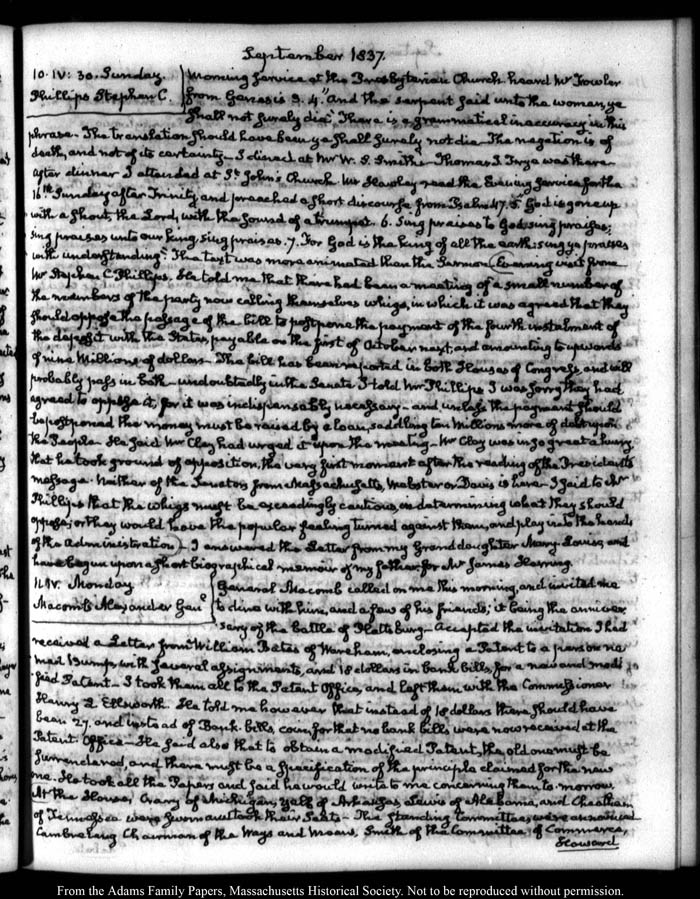 September 1837.
10. IV: 30. Sunday. Morning service at the Presbyterian Church heard Mr Fowler
Phillips Stephen C. from Genesis 3. 4. "and the serpent said unto the woman, ye
shall not surely die" There is a grammatical inaccuracy in this
phrase. The translation should have been ye shall surely not die. The negation is of
death, and not of its certainty. I dined at Mr W. S. Smith's Thomas J. Frye was there
after dinner I attended at St John's Church Mr Hawley read the Evening Service for the
16th Sunday after Trinity and preached a short discourse from Psalm 47. 5. God is gone up
with a shout, the Lord, with the sound of a trumpet. 6. Sing praises to God, sing praises;
sing praises unto our king, sing praises. 7. For God is the king of all the earth: sing ye praises
with understanding." The text was more animated than the Sermon. Evening visit from
Mr Stephen C Phillips. He told me that there had been a meeting of a small number of
the members of the party now calling themselves whigs, in which it was agreed that they
should oppose the passage of the bill to postpone the payment of the fourth instalment of
the deposit with the States, payable on the first of October next and amounting to upwards
of nine Millions of dollars. The bill has been reported in both Houses of Congress, and will
probably pass in both undoubtedly in the Senate I told Mr Phillips I was sorry they had
agreed to oppose it, for it was indispensably necessary - and unless the payment should
be postponed the money must be raised by a loan, saddling ten Millions more of debt upon
the People. He said Mr Clay had urged it upon the meeting - Mr Clay was in so great a hurry
that he took ground of opposition, the very first moment after the reading of the President's
message. Neither of the Senators from Massachusetts, Webster or Davis is here. I said to Mr
Phillips that the whigs must be exceedingly cautious in determining what they should
oppose; or they would have the popular feeling turned against them, and play into the hands
of the administration - I answered the Letter from my Granddaughter Mary Louisa, and
have begun upon a short biographical memoir of my father, for Mr James Herring.
11. IV. Monday General Macomb called on me this morning, and invited me
Macomb Alexander Genl to dine with him, and a few of his friends; it being the anniver
sary of the battle of Plattsburg - Accepted the invitation I had
received a Letter from William Bates of Wareham, enclosing a Patent to a person na
med Bump, with several assignments, and 18 dollars in bank bills, for a new and modi
fied Patent. I took them all to the Patent Office, and left them with the Commissioner
Henry L Ellsworth. He told me however that instead of 18 dollars there should have
been 27. and instead of Bank-bills, coin, for that no bank bills were now received at the
Patent Office - He said also that to obtain a modified Patent, the old one must be
surrendered, and there must be a specification of the principle claimed for the new
one. He took all the Papers and said he would write to me concerning them to-morrow.
At the House, Crary of Michigan, Yell of Arkansas, Lewis of Alabama, and Cheatham
of Tennessee were sworn and took their Seats - The Standing Committees were announced
Cambreleng Chairman of the Ways and Means, Smith of the Committee of Commerce,
Howard
From the Adams Family Papers, Massachusetts Historical Society. Not to be reproduced without permission.